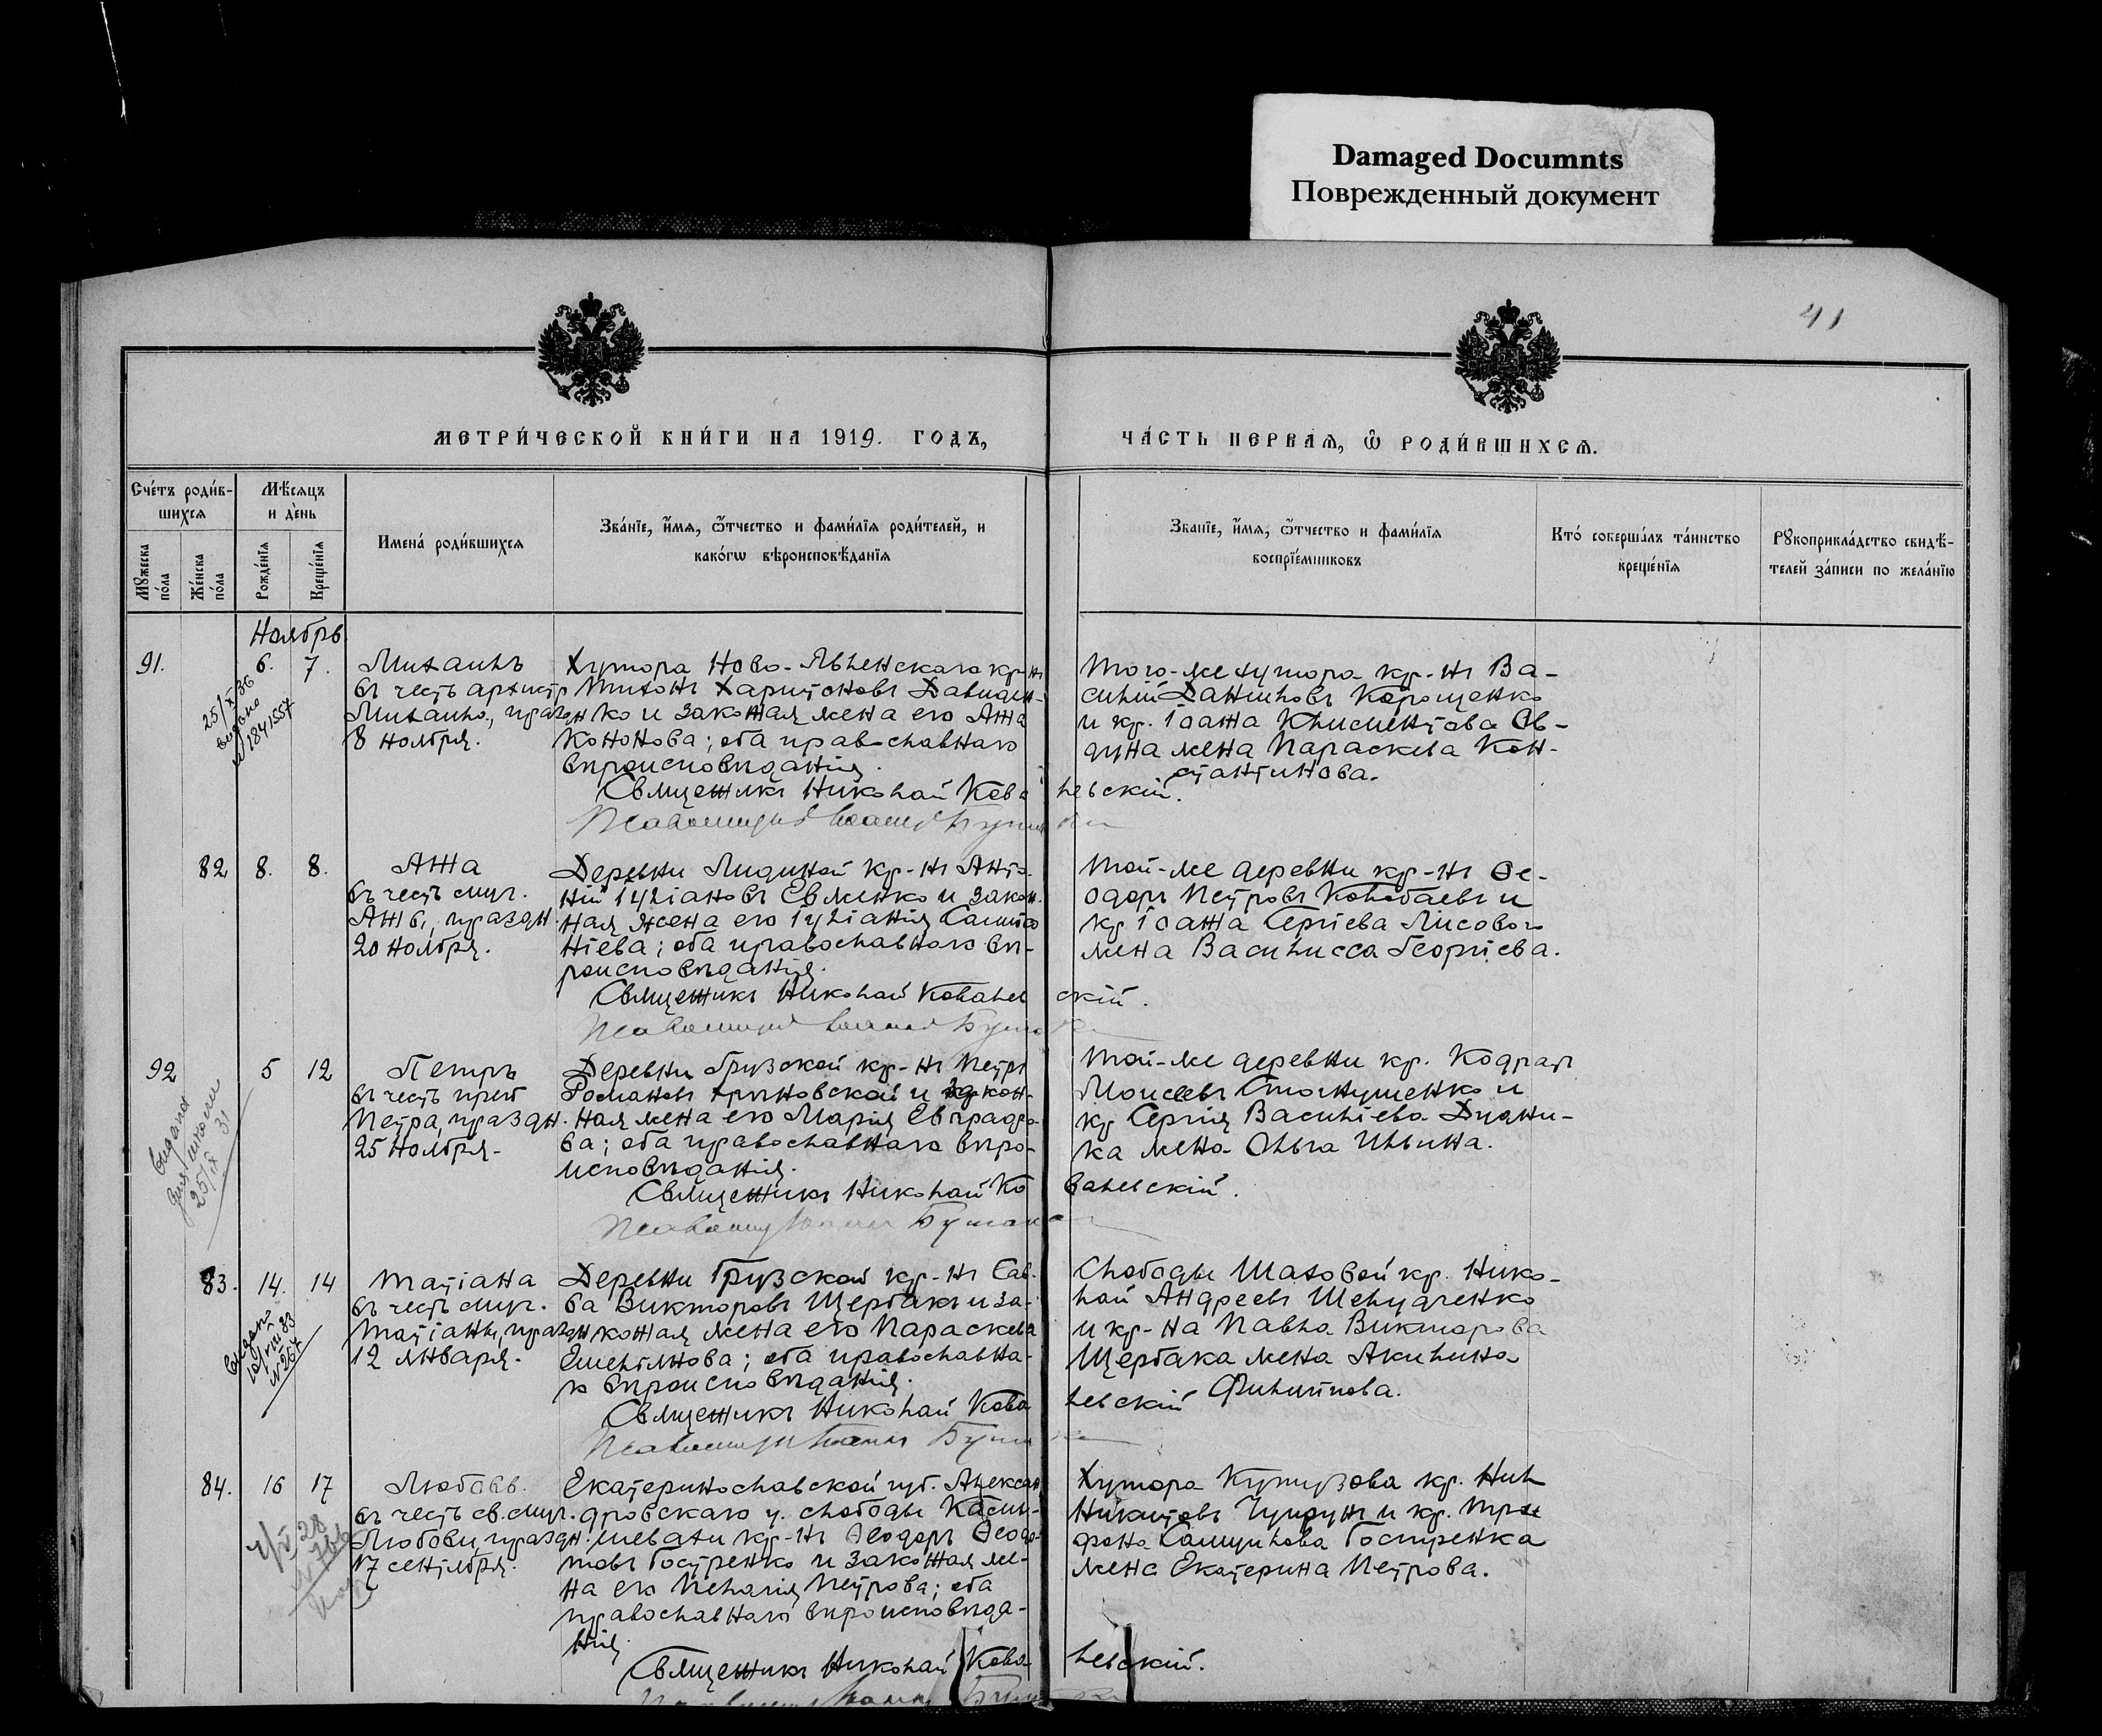 Damaged Documnts
Поврежденный документ
41
МЕТРИ́ЧЕСКОЙ КНИ́ГИ НА 1919. ГОДЪ,
ЧА́СТЬ ПЕРВАЯ, Ѿ РОДИ́ВШИХСЯ.
Сче́тъ роди́в-
шихся
Мѣ́сяцъ
и де́нь
Му́жеска по́ла
Же́нска по́ла
Рожде́нїя
Креще́нїя
Имена́ роди́вшихся
Зва́нїе, и́мя, ѻ҆́тчество и фами́лїя роди́телей, и
како́гѡ вѣроисповѣ́данїя
Зва́нїе, и́мя, ѻ҆́тчество и фами́лїя
воспрїе́мниковъ
Кто́ соверша́лъ та́инство
креще́нїя
Рукоприкла́дство свидѣ́-
телей за́писи по жела́нїю
Ноябрь
91.
6.
7.
25/X 36
видано
№ 1841557
Михаилъ
въ честь архистр
Михаила, праздн
8 ноября.
Хутора Ново-Явленскаго кр-нъ
Тихонъ Харитоновъ Давиден-
ко и законная жена его Анна
Кононова; оба православнаго
вѣроисповѣданія.
Того-же хутора кр-нъ Ва-
силій Даниловъ Корощенко
и кр. Іоанна Климентова Ов-
дуна жена Параскева Кон-
стантинова.
Священникъ Николай Кова левскій.
Псаломщикъ Іоаннъ
82
8.
8.
Анна
въ честь смуч.
Анны, праздн.
20 ноября.
Деревни Лидиной кр-нъ Анто-
ній Іуліановъ Евженко и закон-
ная жена его Іуліанія Сампсо
ніева; оба православнаго вѣ-
роисповѣданія.
Той-же деревни кр-нъ Ѳе-
одоръ Петровъ Колобаевъ и
кр Іоанна Сергіева Лисового
жена Василисса Георгіева.
Священникъ Николай Ковалев скій.
Псаломщикъ Іоаннъ
92
5
12
Видана
для школы
25/X 31
Петръ
въ честь преп
Петра, праздн.
25 ноября.
Деревни Грузской кр-нъ Петръ
Романовъ и закон-
ная жена его Марія Евграфо-
ва; оба православнаго вѣро-
исповѣданія.
Той-же деревни кр. Кодратъ
Моисеевъ и
кр Сергія Васильева Дудни-
ка жена Ольга Ильина.
Священникъ Николай Ко валевскій.
Псаломщикъ Іоаннъ
83.
14.
14
Видана
№ 267
Татіана
въ честь смуч.
Татіаны, праздн
12 января.
Деревни Грузской кр-нъ Сав-
ва Викторовъ Щербакъ и за-
конная жена его Параскева
Емельянова; оба православна-
го вѣроисповѣданія.
Слободы Шаховой кр. Нико-
лай Андреевъ Шелудченко
и кр-на Павла Викторова
Щербака жена Акилина
Филиппова.
Священникъ Николай Кова левскій
Псаломщикъ Іоаннъ
84.
16
17
Любовь.
въ честь св. смуч.
Любови, праздн.
17 сентября.
Екатеринославской губ. Алексан
дровскаго у. слободы Камы-
шевахи кр-нъ Ѳеодоръ Ѳеодо-
товъ Гостренко и законная же-
на его Пелагія Петрова; оба
православнаго вѣроисповѣда-
нія.
Хутора Кутузова кр. Нилъ
Никитовъ Чупрунъ и кр. Три
фона Самуилова Гостренка
жена Екатерина Петрова.
Священникъ Николай Кова левскій.